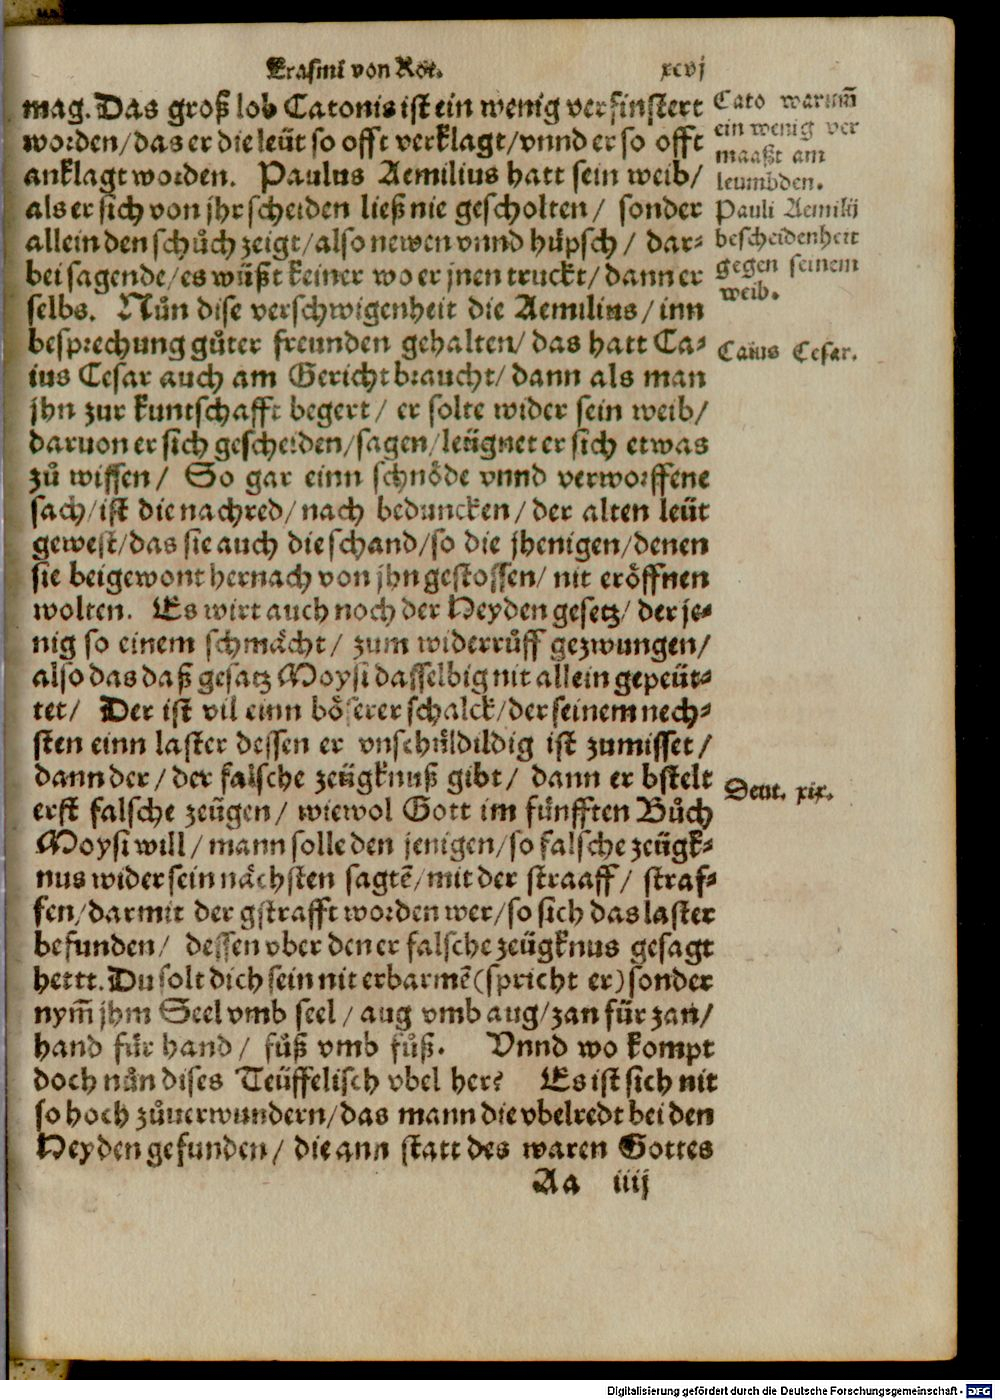 Erasmi von Rot. xcvj
mag. Das groß lob Catonis ist ein wenig verfinstert
worden/das er die leüt so offt verklagt/vnnd er so offt
anklagt worden. Paulus Aemilius hatt sein weib/
als er sich von jhr scheiden ließ nie gescholten/ sonder
allein den schůch zeigt/also newen vnnd hüpsch/ dar-
bei sagende/es wüßt keiner wo er jnen truckt/dann er
selbs. Nůn dise verschwigenheit die Aemilius/inn
besprechung gůter freunden gehalten/das hatt Ca-
ius Cesar auch am Gericht braucht/dann als man
jhn zur kuntschafft begert/ er solte wider sein weib/
daruon er sich gescheiden/sagen/leügnet er sich etwas
zů wissen/ So gar einn schnöde vnnd verworffene
sach/ist die nachred/nach beduncken/der alten leüt
gewest/das sie auch die schand/so die jhenigen/denen
sie beigewont hernach von jhn gestossen/nit eröffnen
wolten. Es wirt auch noch der Heyden gesetz/der je-
nig so einem schmächt/ zum widerrůff gezwungen/
also das daß gesatz Moysi dasselbig nit allein gepeüt-
tet/ Der ist vil einn böserer schalck/der seinem nech-
sten einn laster dessen er vnschůldildig ist zumisset/
dann der/der falsche zeügknuß gibt/ dann er bstelt
erst falsche zeügen/ wiewol Gott im fünfften Bůch
Moysi will/mann solle den jenigen/so falsche zeügk-
nus wider sein nächsten sagtē/mit der straaff/ straf-
fen/darmit der gstrafft worden wer/so sich das laster
befunden/ dessen vber den er falsche zeügknus gesagt
hettt. Du solt dich sein nit erbarmē(spricht er)sonder
nym̄ jhm Seel vmb seel/aug vmb aug/zan für zan/
hand für hand/ fůß vmb fůß. Vnnd wo kompt
doch nůn dises Teüffelisch vbel her? Es ist sich nit
so hoch zůuerwundern/das mann die vbelredt bei den
Heyden gefunden/ die ann statt des waren Gottes
Aa iiij
Cato warum̄
ein wenig ver
maaßt am
leumbden.
Pauli Aemilij
bescheidenheit
gegen seinem
weib.
Caius Cesar.
Deut. xix.
Digitalisierung gefördert durch die Deutsche Forschungsgemeinschaft - DFG